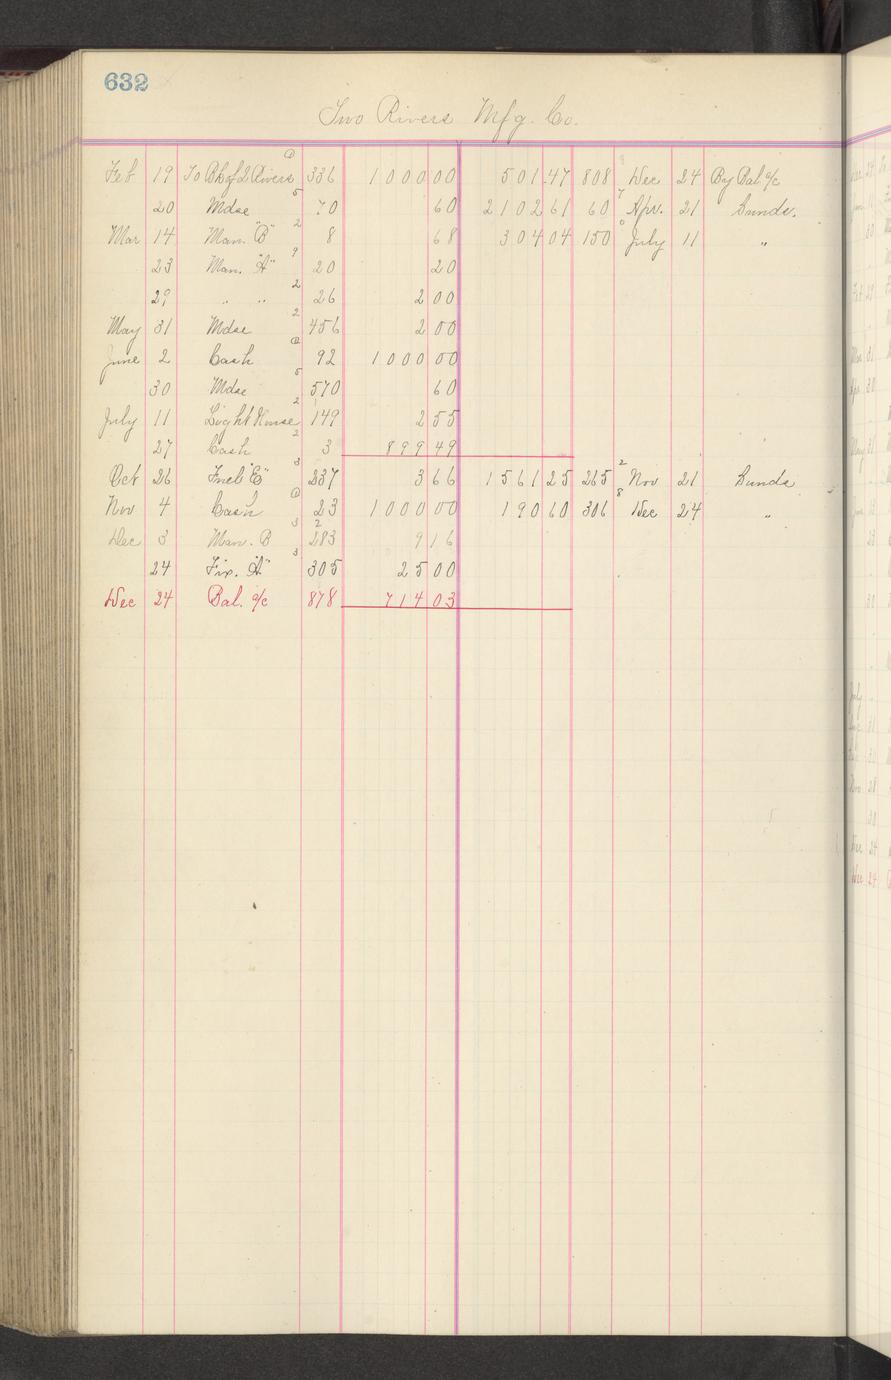 632
Two Rivers Mfg. Co.
Feb 19 To Bk of 2 Rivers 336 1000 00 501 47 808 Dec 24 By Bal. a/c
20 Mdse 5 70 60 2102 61 60 7 Apr. 21 Sunds.
Mar 14 Man. "B" 2 8 68 304 04 150 0 July 11 "
23 Man. "A" 9 20 20
29 " " 2 26 2 00
May 31 Mdse 2 456 2 00
June 2 Cash 92 1000 00
30 Mdse 5 570 60
July 11 Light House 2 149 2 55
27 Cash 2 3 899 49
Oct 26 Fuel "E" 3 237 3 66 1561 25 265 2 Nov 21 Sunds
Nov 4 Cash 23 1000 00 190 60 306 8 Dec 24 "
Dec 3 Man. B 3 283 9 16
24 Fix. "A" 3 305 25 00
Dec 24 Bal. a/c 878 714 03